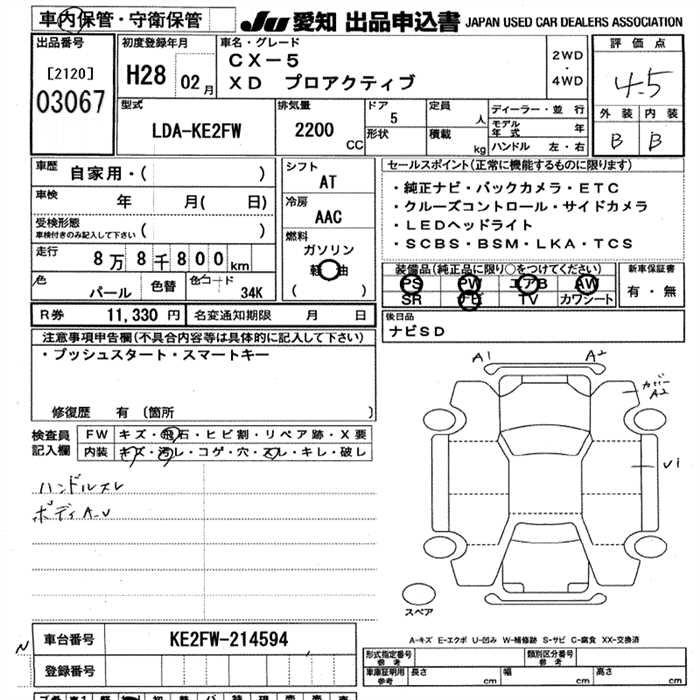 車内保管・守衛保管
JU 愛知 出品申込書 JAPAN USED CAR DEALERS ASSOCIATION
出品番号
[2120]
03067
初度登録年月
H28 02月
車名・グレード
CX-5
XD プロアクティブ
2WD
・
4WD
評価点
4.5
外装 内装
B B
型式
LDA-KE2FW
排気量
2200 CC
ドア
5
形状
定員
人
積載
kg
ディーラー・並行
モデル年式 年
ハンドル 左・右
車歴
自家用・( )
車検
年 月( 日)
受検形態
車検付きのみ記入して下さい ( )
走行
8万8千800km
色
パール
色替
色コード
34K
シフト
AT
冷房
AAC
燃料
ガソリン
軽油
( )
セールスポイント(正常に機能するものに限ります)
・純正ナビ・バックカメラ・ETC
・クルーズコントロール・サイドカメラ
・LEDヘッドライト
・SCBS・BSM・LKA・TCS
装備品(純正品に限り○をつけてください)
PS PW エアB AW
SR ナビ TV カワシート
新車保証書
有・無
R券 11,330円
名変通知期限 月 日
後日品
ナビSD
注意事項申告欄(不具合内容等は具体的に記入して下さい)
・プッシュスタート・スマートキー
修復歴 有 〔箇所 〕
検査員記入欄
FW キズ・飛石・ヒビ割・リペア跡・X要
内装 キズ・汚レ・コゲ・穴・スレ・キレ・破レ
ハンドルスレ
ボディA-U
A1 A2
カバーA2
U1
スペア
A-キズ E-エクボ U-凹み W-補修跡 S-サビ C-腐食 XX-交換済
N
車台番号 KE2FW-214594
登録番号
形式指定番号 参考
類別区分番号 参考
車庫証明用 参考 長さ 幅 高さ
cm cm cm